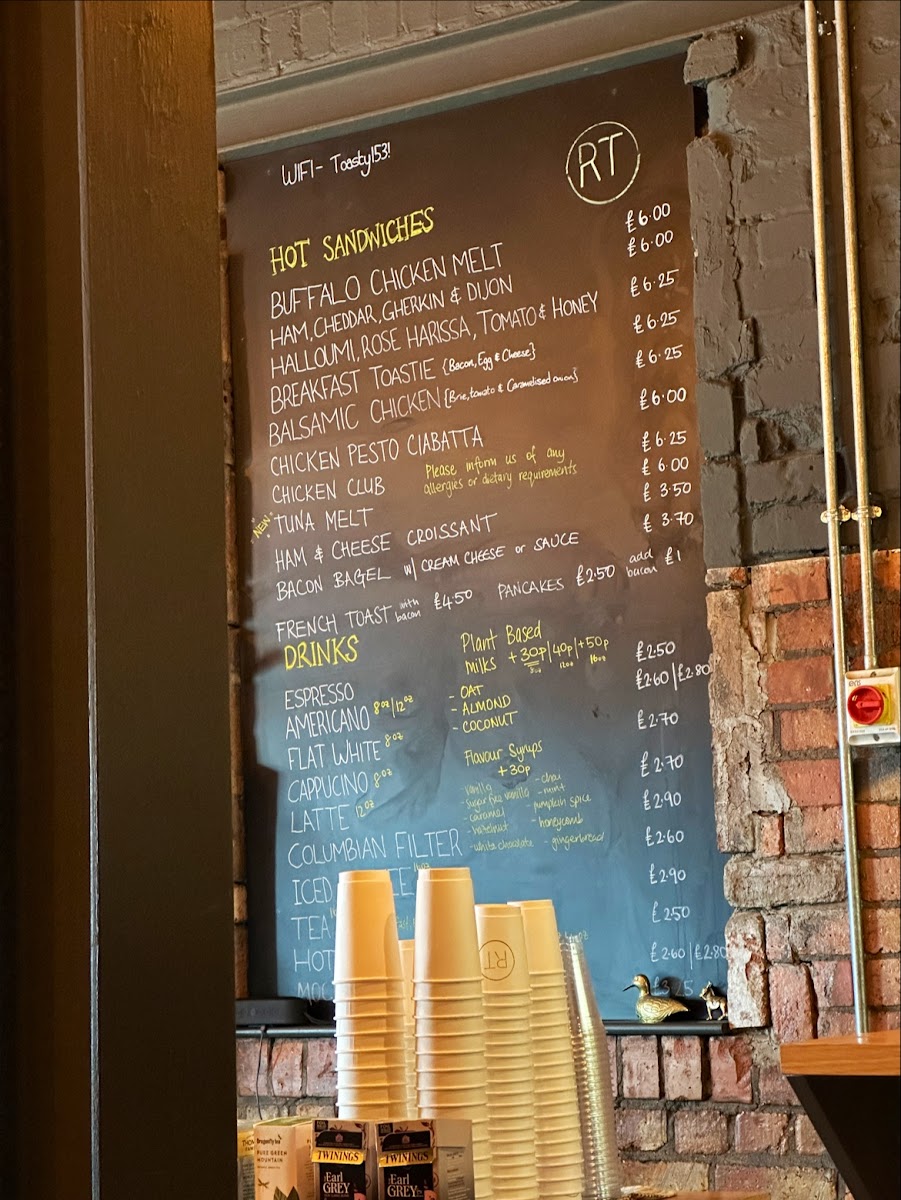 WIFI - Toasty153!
RT
HOT SANDWICHES
BUFFALO CHICKEN MELT £6.00
HAM, CHEDDAR, GHERKIN & DIJON £6.00
HALLOUMI, ROSE HARISSA, TOMATO & HONEY £6.25
BREAKFAST TOASTIE {Bacon, Egg & Cheese} £6.25
BALSAMIC CHICKEN {Brie, tomato & Caramelised onion} £6.25
CHICKEN PESTO CIABATTA £6.00
CHICKEN CLUB £6.25
Please inform us of any
allergies or dietary requirements
"NEW" TUNA MELT £6.00
HAM & CHEESE CROISSANT £3.50
BACON BAGEL w/ CREAM CHEESE or SAUCE £3.70
FRENCH TOAST with bacon £4.50 PANCAKES £2.50 add bacon £1
DRINKS
ESPRESSO £2.50
AMERICANO 8oz/12oz £2.60/£2.80
FLAT WHITE 8oz £2.70
CAPPUCINO 8oz £2.70
LATTE 12oz £2.90
COLUMBIAN FILTER £2.60
ICED £2.90
TEA £2.50
HOT £2.60/£2.80
Plant Based
Milks +30p/40p/+50p
8oz 12oz 16oz
- OAT
- ALMOND
- COCONUT
Flavour Syrups
+30p
- vanilla - chai
- sugar free vanilla - mint
- caramel - pumpkin spice
- hazelnut - honeycomb
- white chocolate - gingerbread
RT
Dragonfly tea
PURE GREEN
MOUNTAIN
TWININGS
Earl
GREY
TWININGS
Earl
GREY